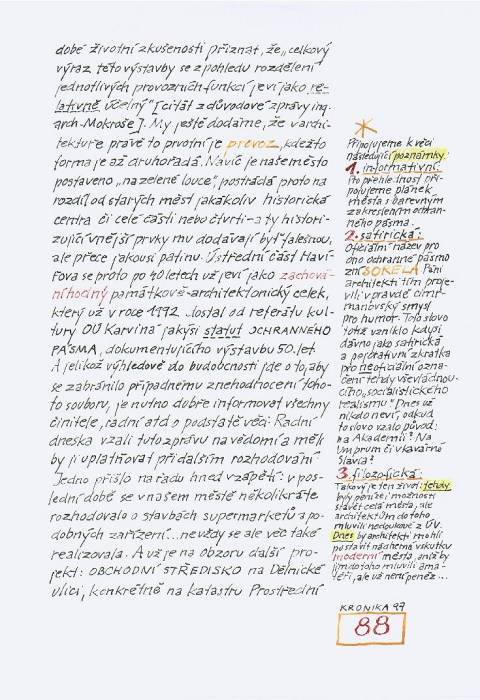 době životní zkušenosti přiznat, že „celkový
výraz této výstavby se z pohledu rozdělení
jednotlivých provozních funkcí jeví jako re-
lativně účelný“ [citát z důvodové zprávy ing.
arch. Mokroše]. My ještě dodáme, že v archi-
tektuře právě to prvotní je provoz, kdežto
forma je až druhořadá. Navíc je naše město
postaveno „na zelené louce“, postrádá proto na
rozdíl od starých měst jakákoliv historická
centra či celé části nebo čtvrti - a ty histori-
zující vnější prvky mu dodávají byť falešnou,
ale přece jakousi patinu. Ústřední část Haví-
řova se proto po 40 letech už jeví jako zachová-
níhodný památkově-architektonický celek,
který už v roce 1992 dostal od referátu kul-
tury OÚ Karviná jakýsi statut OCHRANNÉHO
PÁSMA, dokumentujícího výstavbu 50. let.
A jelikož výhledově do budoucnosti jde o to, aby
se zabránilo případnému znehodnocení toho-
to souboru, je nutno dobře informovat všechny
činitele, radní atd. o podstatě věci. Radní
dneska vzali tuto zprávu na vědomí a měli
by ji uplatňovat při dalším rozhodování.
Jedno přišlo na řadu hned vzápětí: v pos-
lední době se v našem městě několikráte
rozhodovalo o stavbách supermarketů a po-
dobných zařízení... ne vždy se ale věc také
realizovala. A už je na obzoru další pro-
jekt: OBCHODNÍ STŘEDISKO na Dělnické
ulici, konkrétně na katastru Prostřední
*
Připojujeme k věci
následující poznámky:
1. informativní:
Pro přehlednost při-
pojujeme plánek
města s barevným
zakreslením ochran-
ného pásma.
2. satirická:
Oficiální název pro
ono ochranné pásmo
zní SORELA. Páni
architekti tím proje-
vili vpravdě cimr-
manovský smysl
pro humor. Toto slovo
totiž vzniklo kdysi
dávno jako satirická
a pejorativní zkratka
pro neoficiální ozna-
čení tehdy vševládnou-
cího „socialistického
realismu“. Dnes už
nikdo neví, odkud
to slovo vzalo původ:
na Akademii? Na
Umprum či v kavárně
Slavia?
3. filozofická:
Takový je ten život: tehdy
byly peníze i možnosti
stavět celá města, ale
architektům do toho
mluvili nedoukové z ÚV.
Dnes by architekti mohli
postavit nádherná vskutku
moderní města, aniž by
jim do toho mluvili ama-
téři, ale už není peněz...
KRONIKA 97
88